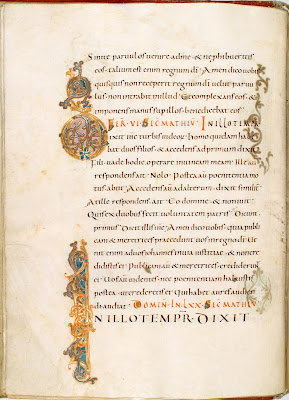 Sinite paruulos uenire adme · & neprohibueritis
eos · talium est enim regnum dī · Amen dico uobis
quisquis non receperit regnum dī uelut paruu
lus · non intrabit in illud · Et complexans eos · &
inponens manus sup illos · benedicebat eos ·
FER · VI · SCD MATHEV · IN ILLO TEMPR
Dixit ihc turbis iudeorū · homo quidam habe
bat duos filios · & accedens ad primum dixit
Fili uade hodie operare in uineam meam · Ille aū
respondens ait · Nolo · Postea aū poenitentia mo
tus abiit · Accedens aū ad alterum · dixit similit
At ille respondens ait · Eo domine · & non iuit
Quis ex duobus fecit uoluntatem patris · Dicunt
primus · Dicit illis ihc · Amen dico uobis · quia publi
cani & meretrices praecedunt uos in regno dī · Ue
nit enim ad uos iohannes in uia iustitiae · & non cre
didistis ei · Publicani aū & meretrices crediderunt
ei · Uos aū uidentes · nec poenitentiam habuistis
postea · ut crederetis ei · Qui habet aures audien
di audiat · DOMIN · IN LXX · SCD MATHEV
IN ILLO TEMPR · DIXIT